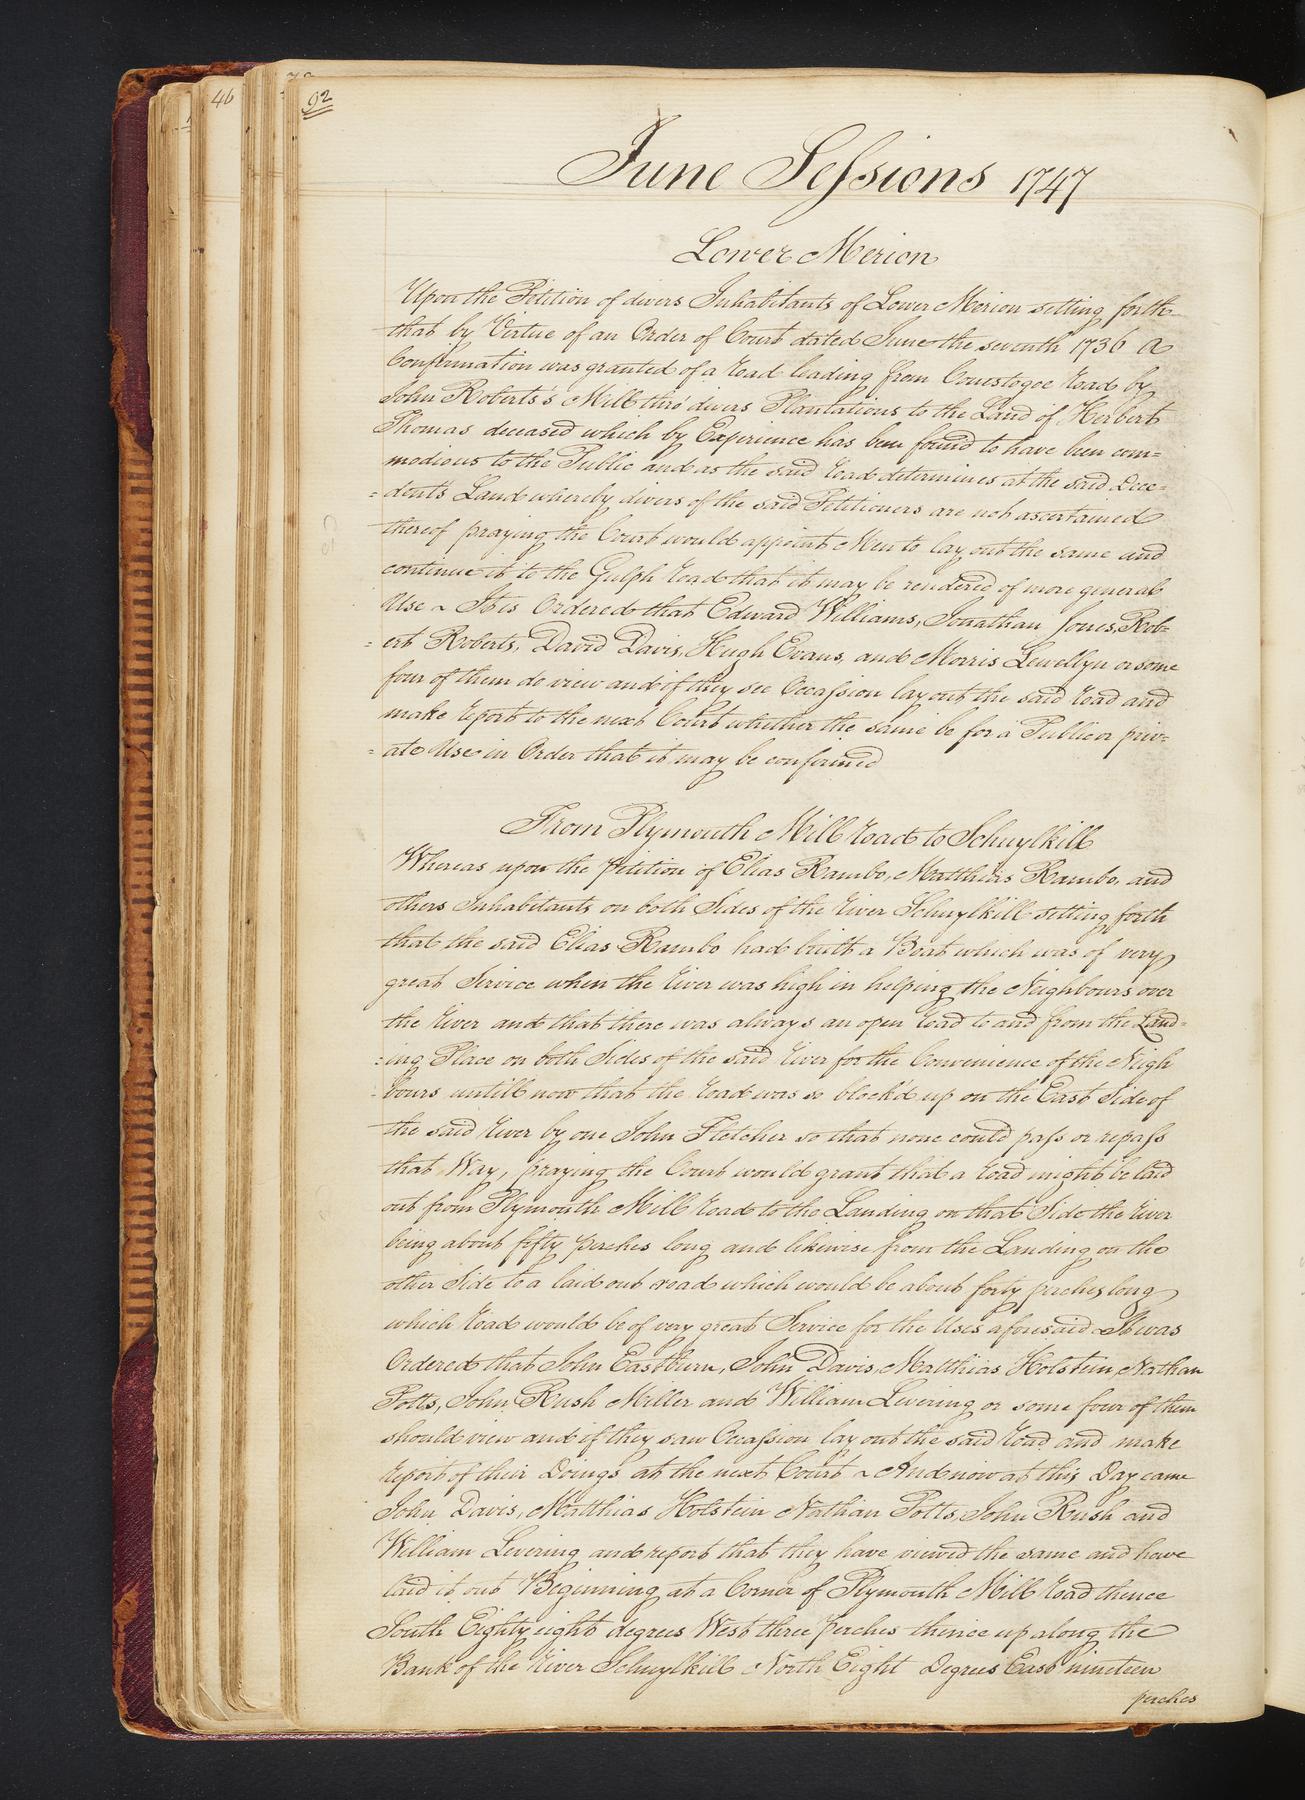 46
92
June Sessions 1747
Lower Merion
Upon the Petition of divers Inhabitants of Lower Merion setting forth
that by Virtue of an Order of Court dated June the seventh 1736 A
Confirmation was granted of a Road leading from Conestogoe Road by
John Roberts's Mill thro' divers Plantations to the Land of Herbert
Thomas deceased which by Experience has been found to have been com=
modious to the Public and as the said Road determines at the said Dece=
=dent's Land whereby divers of the said Petitioners are not ascertained
thereof praying the Court would appoint Men to lay out the same and
continue it to the Gulph Road that it may be rendered of more general
Use ~ It is Ordered that Edward Williams, Jonathan Jones, Rob=
=ert Roberts, David Davis, Hugh Evans, and Morris Lewellyn or some
four of them do view and if they see Occassion lay out the said Road and
make Report to the next Court whether the same be for a Public or priv=
=ate Use in Order that it may be confirmed
From Plymouth Mill Road to Schuylkill
Whereas upon the Petition of Elias Rambo, Matthias Rambo, and
others Inhabitants on both Sides of the River Schuylkill setting forth
that the said Elias Rambo had built a Boat which was of very
great Service when the River was high in helping the Neighbours over
the River and that there was always an open Road to and from the Land=
=ing Place on both Sides of the said River for the Convenience of the Neigh
=bours untill now that the Road was so block'd up on the East Side of
the said River by one John Fletcher so that none could pass or repass
that Way, praying the Court would grant that a Road might be laid
out from Plymouth Mill Road to the Landing on that Side the River
being about fifty perches long and likewise from the Landing on the
other Side to a laid out road which would be about forty perches long
which Road would be of very great Service for the Uses aforesaid It was
Ordered that John Eastburn, John Davis, Matthias Holstein, Nathan
Potts, John Rush Miller and William Levering or some four of them
should view and if they saw Occassion lay out the said Road and make
Report of their Doings at the next Court ~ And now at this Day came
John Davis, Matthias Holstein Nathan Potts, John Rush and
William Levering and report that they have viewed the same and have
laid it out Beginning at a Corner of Plymouth Mill Road thence
South Eighty eight degrees West three perches thence up along the
Bank of the River Schuylkill North Eight Degrees East nineteen
perches